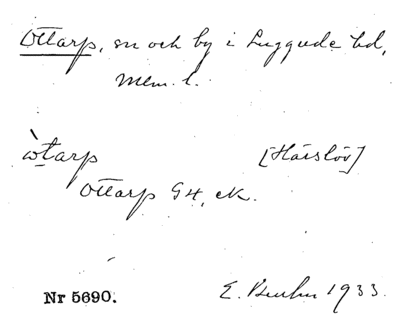 Ottarp, sn och by i Luggude hd,
Mlm. l.
òtarp [Härslöv]
Ottarp GH, ck.
Nr 5690. E. 1933.